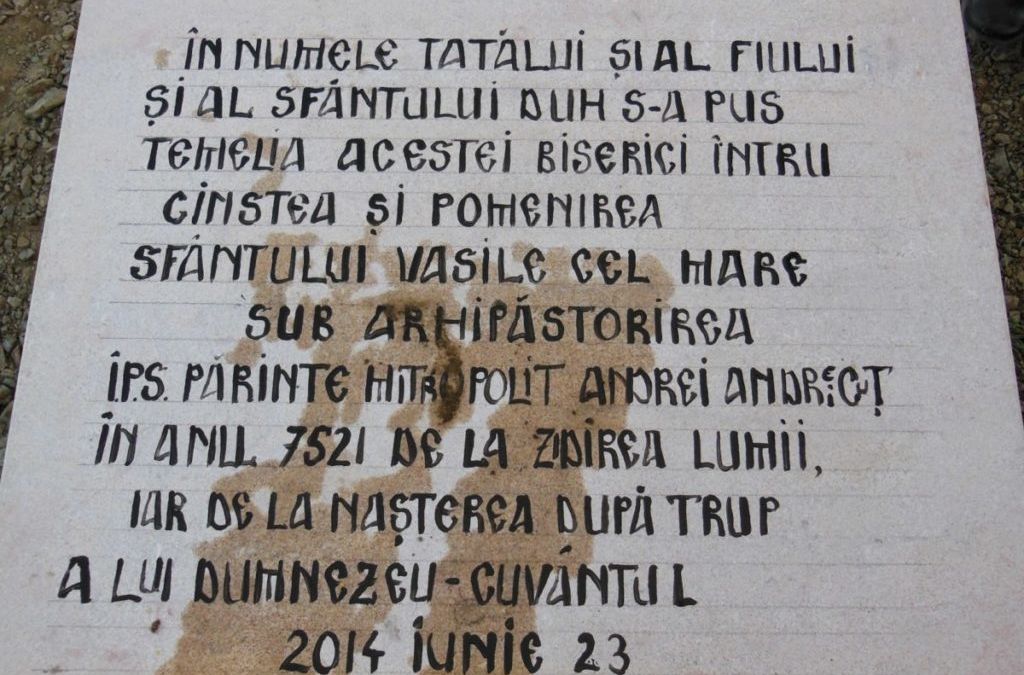 ÎN NUMELE TATĂLUI ȘI AL FIULUI
ȘI AL SFÂNTULUI DUH S-A PUS
TEMELIA ACESTEI BISERICI ÎNTRU
CINSTEA ȘI POMENIREA
SFÂNTULUI VASILE CEL MARE
SUB ARHIPĂSTORIREA
Î.P.S. PĂRINTE MITROPOLIT ANDREI ANDREICUȚ
ÎN ANUL 7521 DE LA ZIDIREA LUMII,
IAR DE LA NAȘTEREA DUPĂ TRUP
A LUI DUMNEZEU-CUVÂNTUL
2014 IUNIE 23